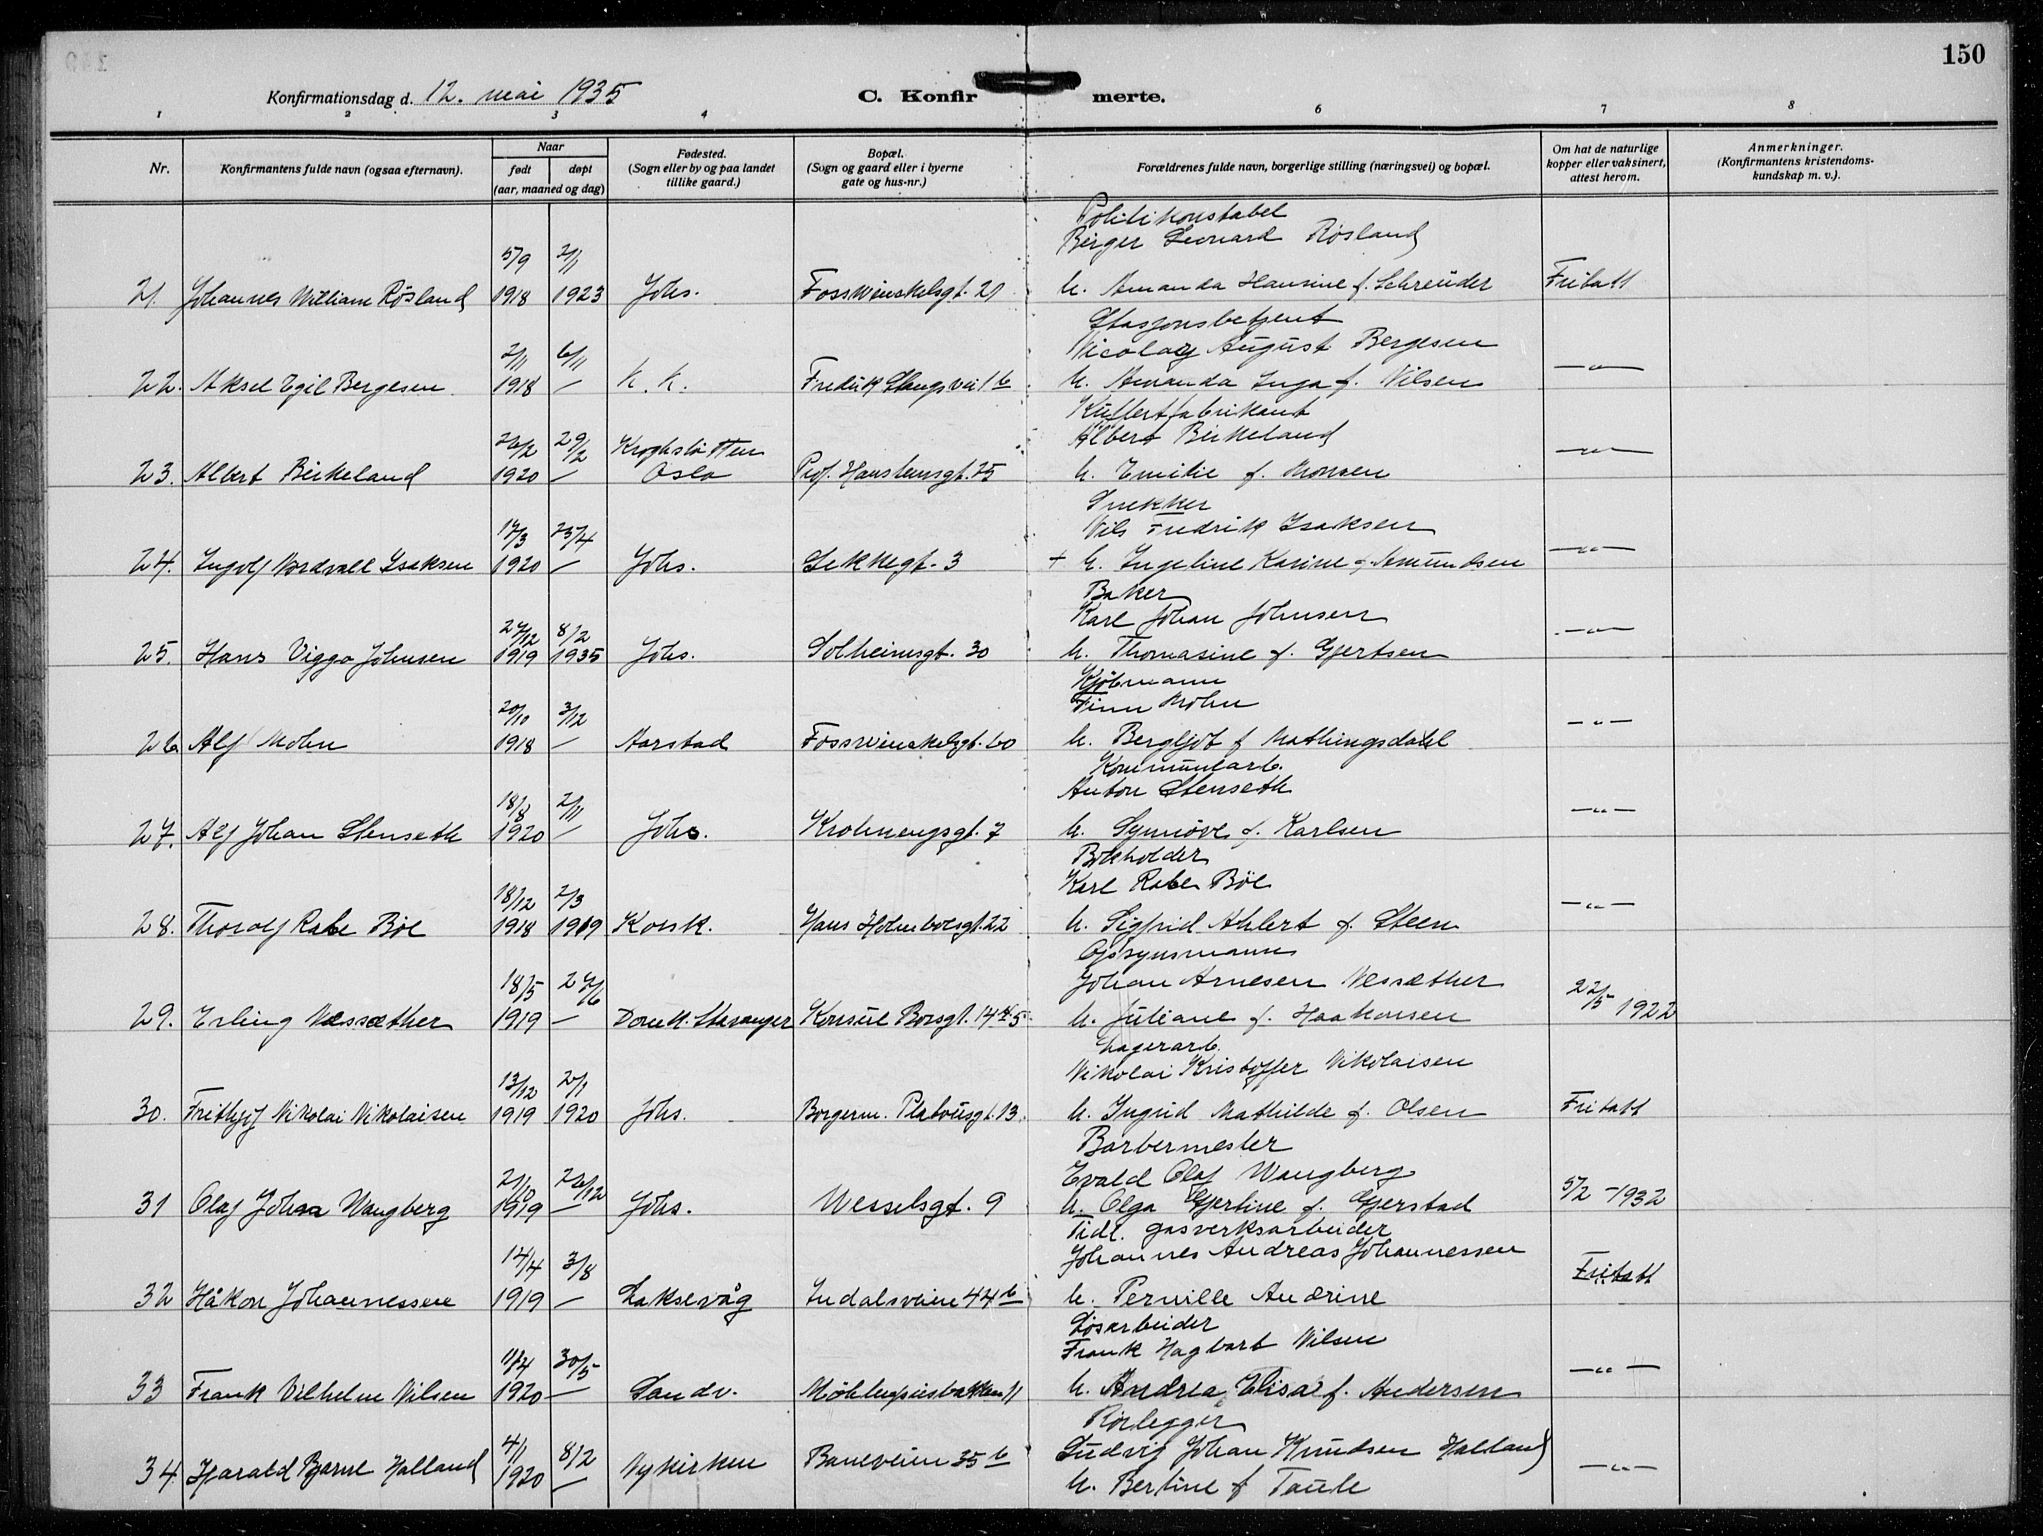 150
Konfirmationsdag d. 12. mai 1935
C. Konfirmerte.
1 2 3 4 6 7 8
Nr.
Konfirmantens fulde navn (ogsaa efternavn).
Naar
født
døpt
(aar, maaned og dag)
Fødested.
(Sogn eller by og paa landet
tillike gaard.)
Bopæl.
(Sogn og gaard eller i byerne
gate og hus-nr.)
Forældrenes fulde navn, borgerlige stilling (næringsvei) og bopæl.
Om hat de naturlige
kopper eller vaksinert,
attest herom.
Anmerkninger.
(Konfirmantens kristendoms-
kundskap m. v.).
Politikonstabel
Birger Leonard Røsland
5/9 2/11
21. Johannes William Røsland 1918 1923 Johs. Fosswinckelsgt. 21 h. Amanda Hansine f. Schreuder Fritatt
Stasjonsbetjent
Nicolay August Bergesen
2/11 6/11
22. Aksel Egil Bergesen 1918 — K. K. Fredrik Stangsvei 1 b h. Amanda Inga f. Nilsen —"—
Kuffertfabrikant
Albert Birkeland
26/2 29/2 Kroghstøtten
23. Albert Birkeland 1920 — Oslo Prof. Hansteensgt. 25 h. Emilie f. Monsen —"—
Snekker
Nils Fredrik Isaksen
17/3 25/4
24. Ingolf Nordvall Isaksen 1920 — Johs. Lekkegt. 3 + h. Ingeline Karine f. Amundsen —"—
Baker
Karl Johan Johnsen
27/12 8/2
25. Hans Viggo Johnsen 1919 1935 Johs. Solheimsgt. 30 h. Thomasine f. Gjertsen —"—
Kjøbmann
Finn Mohn
20/10 3/12
26 Alf Mohn 1918 — Aarstad Fosswinckelsgt. 60 h. Bergljot f Mathingsdahl —"—
Kommunearb.
Anton Stenseth
18/8 2/11
27. Alf Johan Stenseth 1920 — Johs. Krohnengsgt. 7 h. Synnøve f. Karlsen —"—
Bokholder
Karl Rabe Böe
18/12 2/3
28. Thorolf Rabe Böe 1918 1919 Korsk. Hans Holmboesgt. 22 h. Sigfrid Ahlert f. Steen —"—
Opsynsmann
Johan Arnesen Nessæther
18/5 27/6 22/5 1922
29. Erling Næssæther 1919 — Domk. Stavanger Konsul Børsgt. 14 h. Juliane f. Haakonsen
Lagerarb.
Nikolai Kristoffer Nikolaisen
13/12 2/1
30. Frithjof Nikolai Nikolaisen 1919 1920 Johs. Borgerm. Platousgt. 13. h. Ingrid Mathilde f. Olsen Fritatt
Barbermester
Evald Olaf Wangberg
2/10 26/12 5/2 - 1932
31 Olaf Johan Wangberg 1919 — Johs. Wesselsgt. 9 h. Olga Gjertine f. Gjerstad
Tidl. gasverksarbeider
Johannes Andreas Johannessen
14/4 3/8
32 Håkon Johannessen 1919 — Laksevåg Indalsveien 44 b h. Pernille Andrine Fritatt
Løsarbeider
Frank Hagbart Nilsen
11/4 30/5
33 Frank Vilhelm Nilsen 1920 — Sandv. Møhlenprisbakken 11 h. Andrea Elisa f. Andersen —"—
Rørlegger
4/1 8/2 Ludvig Johan Knudsen Halland
34. Harald Bjarne Halland 1920 — Nykirken Baneveien 35 b h. Bertine f Taule —"—